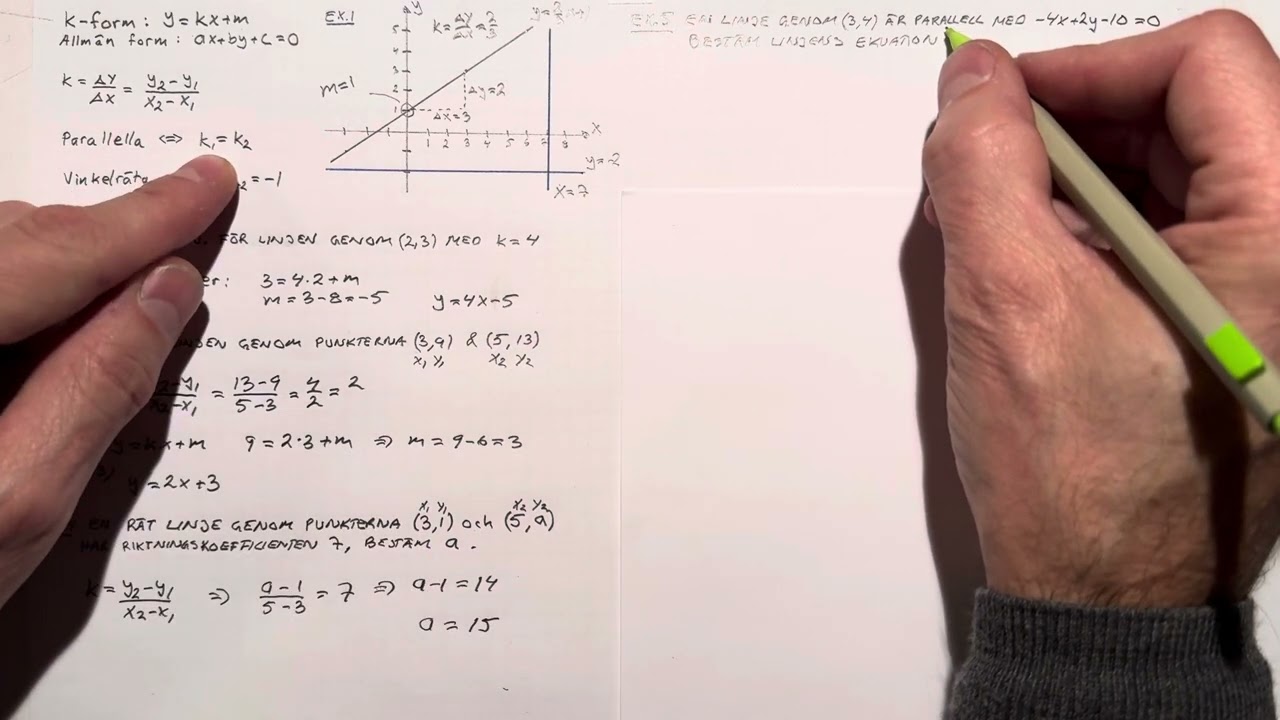 k-form: y=kx+m
Allmän form: ax+by+c=0
k = Δy/Δx = y₂-y₁/x₂-x₁
Parallella ⇔ k₁=k₂
Vinkelräta = -1
EX.1
y
k=Δy/Δx=2/3
m=1
Δy=2
Δx=3
5
3
2
1
1 2 3 4 5 6 7 8
x
y=-2
x=7
FÖR LINJEN GENOM (2,3) MED k=4
3=4·2+m
m=3-8=-5 y=4x-5
GENOM PUNKTERNA (3,9) & (5,13)
x₁ y₁ x₂ y₂
y₂-y₁/x₂-x₁ = 13-9/5-3 = 4/2 = 2
y=kx+m 9=2·3+m ⇒ m=9-6=3
y=2x+3
x₁ y₁ x₂ y₂
EN RÄT LINJE GENOM PUNKTERNA (3,1) och (5,a)
HAR RIKTNINGSKOEFFICIENTEN 7, BESTÄM a.
k = y₂-y₁/x₂-x₁ ⇒ a-1/5-3 = 7 ⇒ a-1=14
a=15
EX.5 EN LINJE GENOM (3,4) ÄR PARALLELL MED -4x+2y-10=0
BESTÄM LINJENS EKVATION